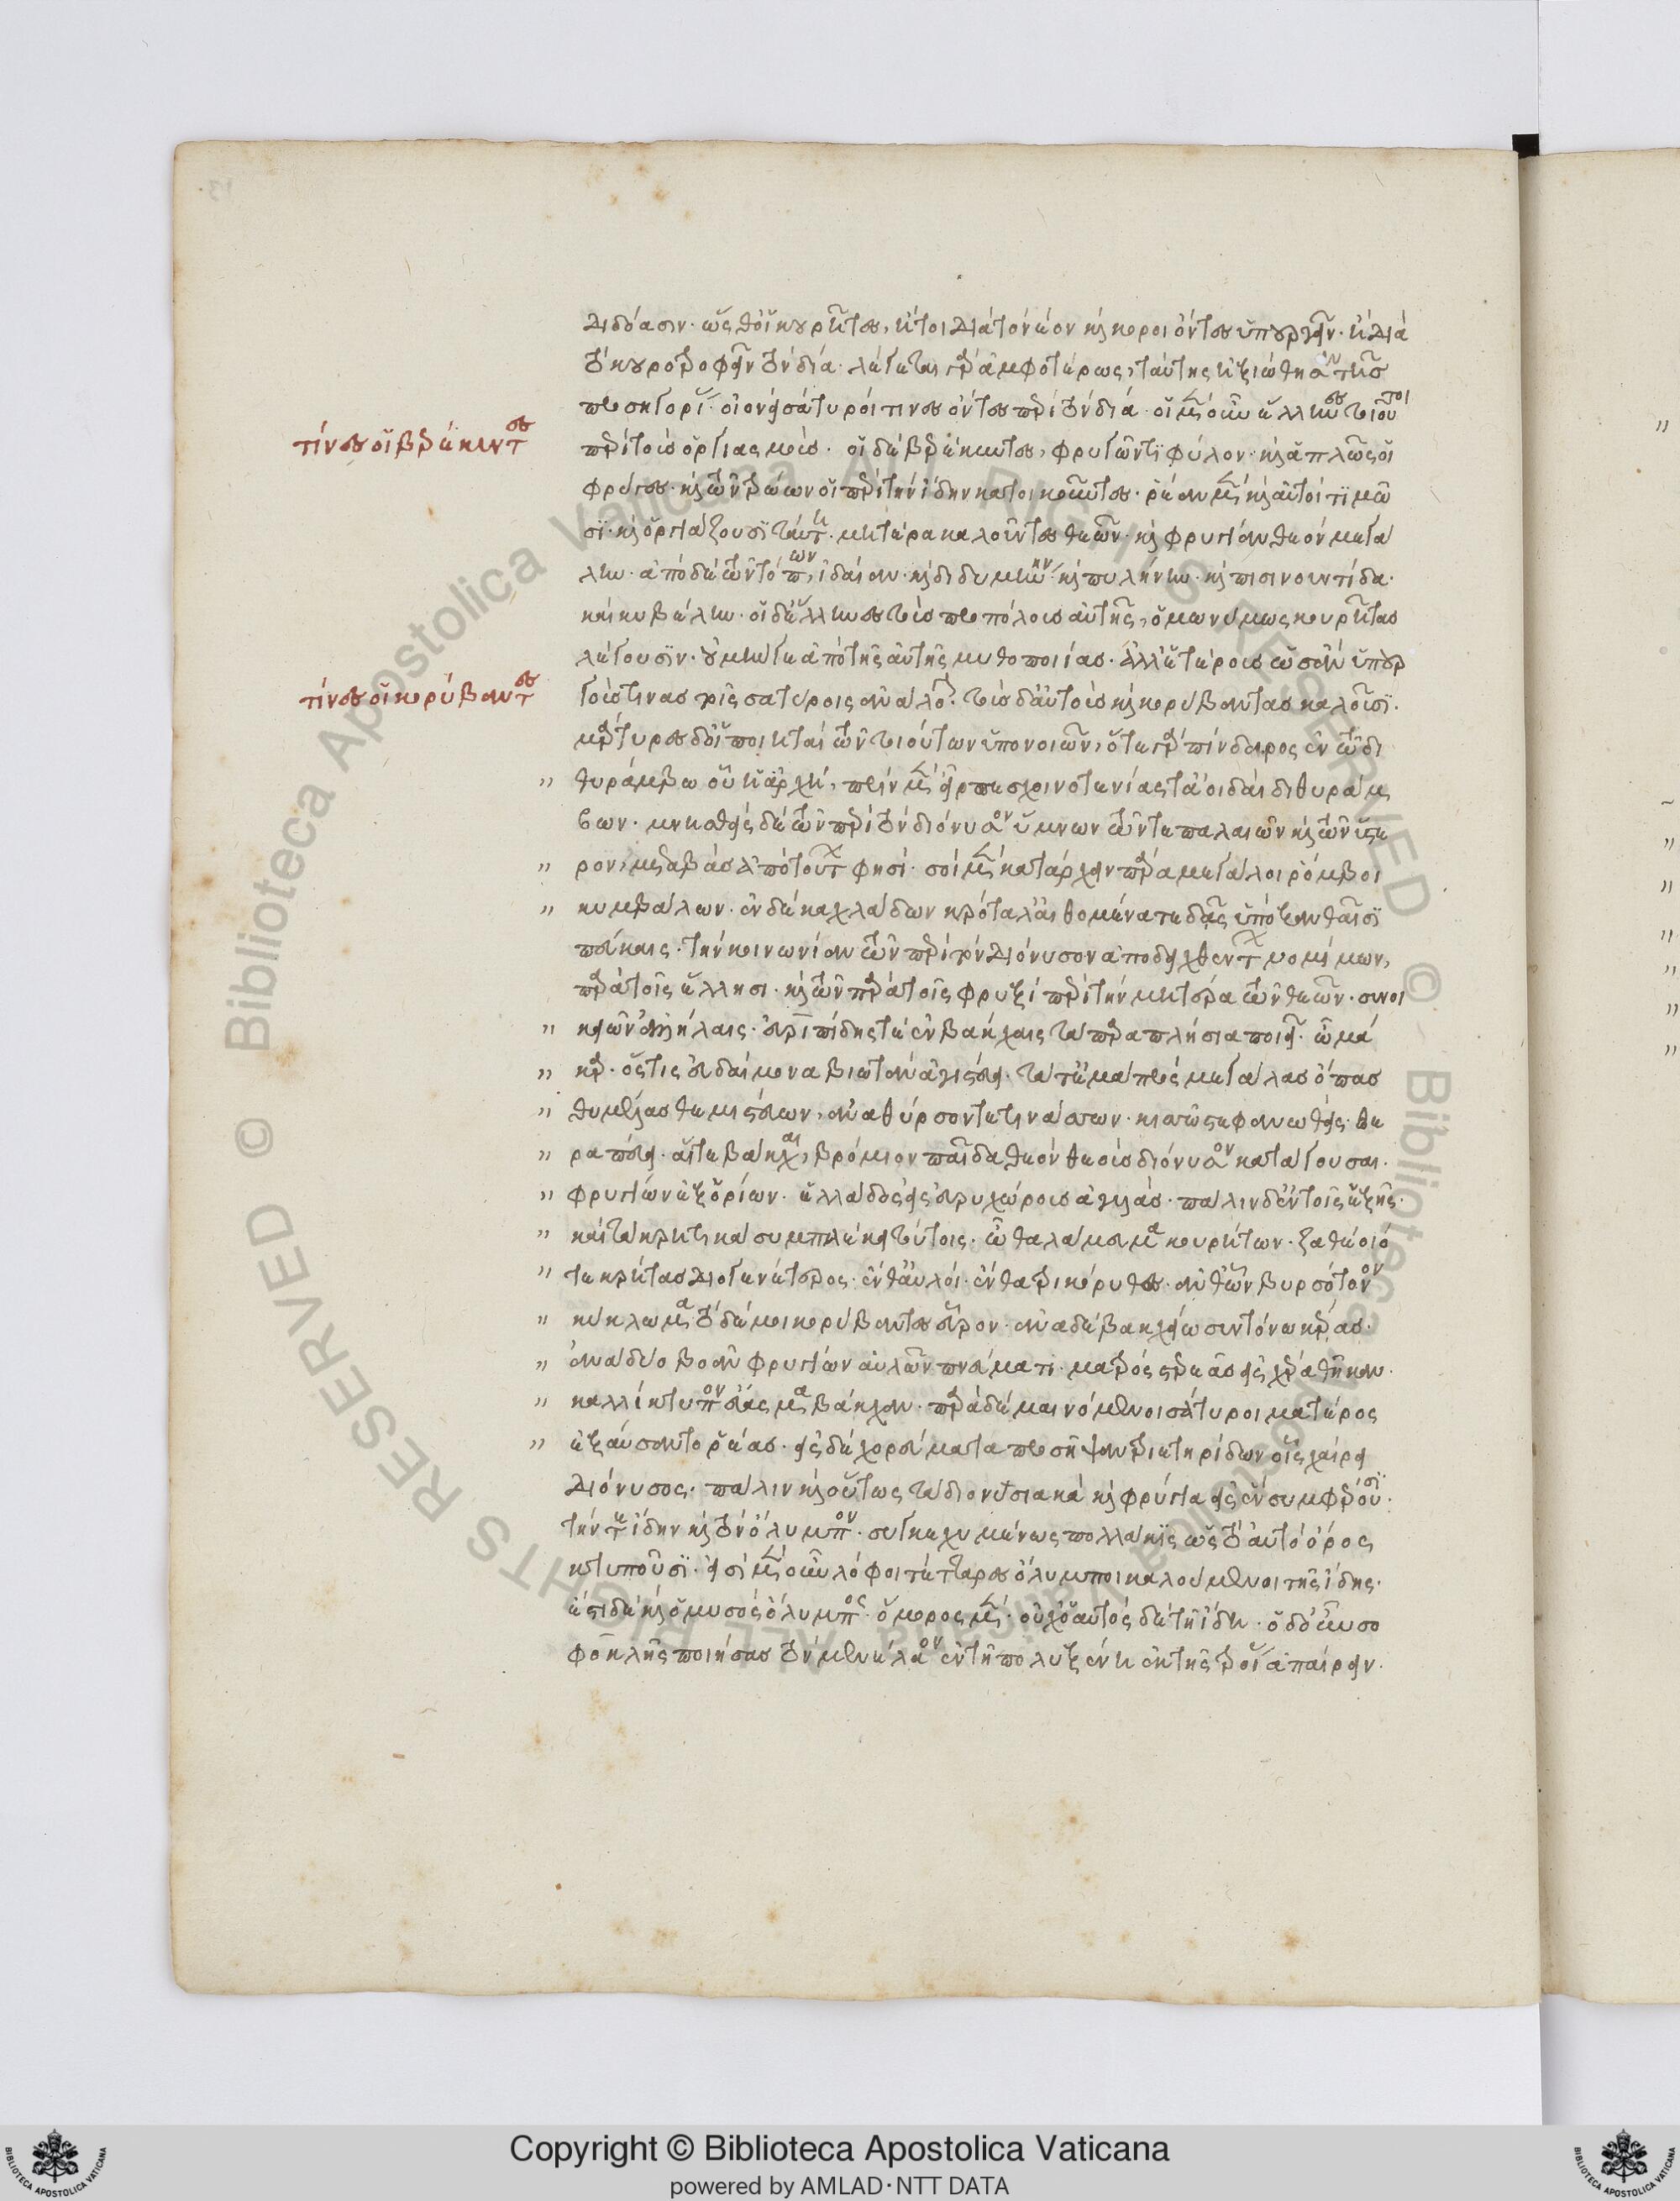 διδόασιν. ὥσθ' οἱ κουρῆτες, ἤτοι διὰ τὸ νέοι καὶ κόροι ὄντες ὑπουργεῖν. ἢ διὰ
τὸ κουροτροφεῖν τὸν δία. λέγεται γὰρ ἀμφοτέρως, ταύτης ἠξιώθησαν τῆς
προσηγορίας. οἱονεὶ σάτυροί τινες ὄντες περὶ τὸν δία. οἱ μὲν οὖν ἕλληνες τοιοῦτοι
τίνες οἱ βερέκυντες
περὶ τοὺς ὀργιασμούς. οἱ δὲ βερέκυντες, φρυγῶν τι φῦλον. καὶ ἁπλῶς οἱ
φρύγες. καὶ τῶν τρώων οἱ περὶ τὴν ἴδην κατοικοῦντες. ῥέαν μὲν καὶ αὐτοὶ τιμῶ
σι. καὶ ὀργιάζουσι ταύτῃ. μητέρα καλοῦντες θεῶν. καὶ φρυγίαν θεὸν μεγά
λην. ἀπὸ δὲ τῶν τόπων, ἰδαίαν. καὶ διδυμήνην. καὶ πυλήνην. καὶ πισινουντίδα.
καὶ κυβέλην. οἱ δ' ἕλληνες τοὺς προπόλους αὐτῆς, ὁμωνύμως κουρῆτας
λέγουσιν. οὐ μήν γε ἀπὸ τῆς αὐτῆς μυθοποιίας. ἀλλ' ἑτέρους ὡσὰν ὑπουρ
τίνες οἱ κορύβαντες
γούς τινας τοῖς σατύροις ἀνὰ λόγον. τοὺς δ' αὐτοὺς καὶ κορύβαντας καλοῦσι.
μάρτυρες δ' οἱ ποιηταὶ τῶν τοιούτων ὑπονοιῶν, ὅτε γὰρ πίνδαρος ἐν τῷ δι
" θυράμβω οὗ ἡ ἀρχή, πρὶν μὲν εἷρπε σχοινοτενίας τ' ἀοιδὰι διθυράμ
βων. μνησθεὶς δὲ τῶν περὶ τὸν διόνυσον ὕμνων τῶν τε παλαιῶν καὶ τῶν ὕστε
" ρον, μεταβὰς ἀπὸ τούτων φησί. σοὶ μὲν κατάρχειν πάρα μεγάλοι ῥόμβοι
" κυμβάλων. ἐν δὲ καχλάδων κρόταλ' αἰθομένα τε δᾲς ὑπὸ ξανθαῖσι
πεύκαις. τὴν κοινωνίαν τῶν περὶ τὸν διόνυσον ἀποδειχθέντων νομίμων,
παρὰ τοῖς ἕλλησι. καὶ τῶν παρὰ τοῖς φρυξὶ περὶ τὴν μητέρα τῶν θεῶν. συνοι
" κειῶν ἀλλήλαις. εὐριπίδης τὲ ἐν βακχαις τὰ παραπλήσια ποιεῖ. ὦ μά
" καρ. ὅστις εὐδαίμων βιοτὰν ἁγιστεύει. τά τε ματρὸς μεγάλας ὄργια
" θεμιστεύων, ἀνὰ θύρσον τε τινάσσων. κισσῷ στεφανωθεὶς. θε
" ραπεύει. ἄγετε βάκχαι, βρόμιον παῖδα θεὸν θεοῦς διόνυσον κατάγουσαι.
" φρυγίων ἐξ ὀρίων. ἑλλάδος εἰς εὐρυχώρους ἀγυιάς. πάλιν δ' ἐν τοῖς ἑξῆς.
" καὶ τὰ κρητικὰ συμπλέκει τούτοις. ὦ θαλάμευμα κουρήτων. ζάθεοί
" τε κρῆτας διογενέτορες. ἔνθ' αὐλοὶ. ἔνθα τρικόρυθες. ἄνθρων βυρσότονον
" κύκλωμα τόδε μοι κορύβαντες εὗρον. ἀνὰ δὲ βακχείω συντόνω κέρας.
" ἀνὰ δύο βοᾶν φρυγίων αὐλῶν πνεύματι. ματρός τε ῥέας εἰς χέρα θῆκαν.
" καλλίκτυπον εὐάσμα βάκχαν. παρὰ δὲ μαινόμενοι σάτυροι ματέρος
" ἐξανύσαντο ῥέας. εἰς δὲ χορεύματα προσῆψαν τριετηρίδων οἷς χαίρει
διόνυσος. πάλιν καὶ οὕτως τὰ διονυσιακὰ καὶ φρύγια εἰς ἓν συμφέρουσι.
τὴν τε ἴδην καὶ τὸν ὄλυμπον. συγκεχυμένως πολλάκις ὡς τὸ αὐτὸ ὄρος
κτυποῦσι. εἰσὶ μὲν οὖν λόφοι τέτταρες ὄλυμποι καλούμενοι τῆς ἴδης.
ἔστι δὲ καὶ ὁ μυσὸς ὄλυμπος. ὅμορος μὲν. οὐχ ὁ αὐτὸς δὲ τῇ ἴδῃ. ὁ δ' οὖν σο
φοκλῆς ποιήσας τὸν μενέλαον ἐν τῇ πολυξένῃ ἐκ τῆς τροίας ἀπαίρειν.
Copyright © Biblioteca Apostolica Vaticana
powered by AMLAD·NTT DATA